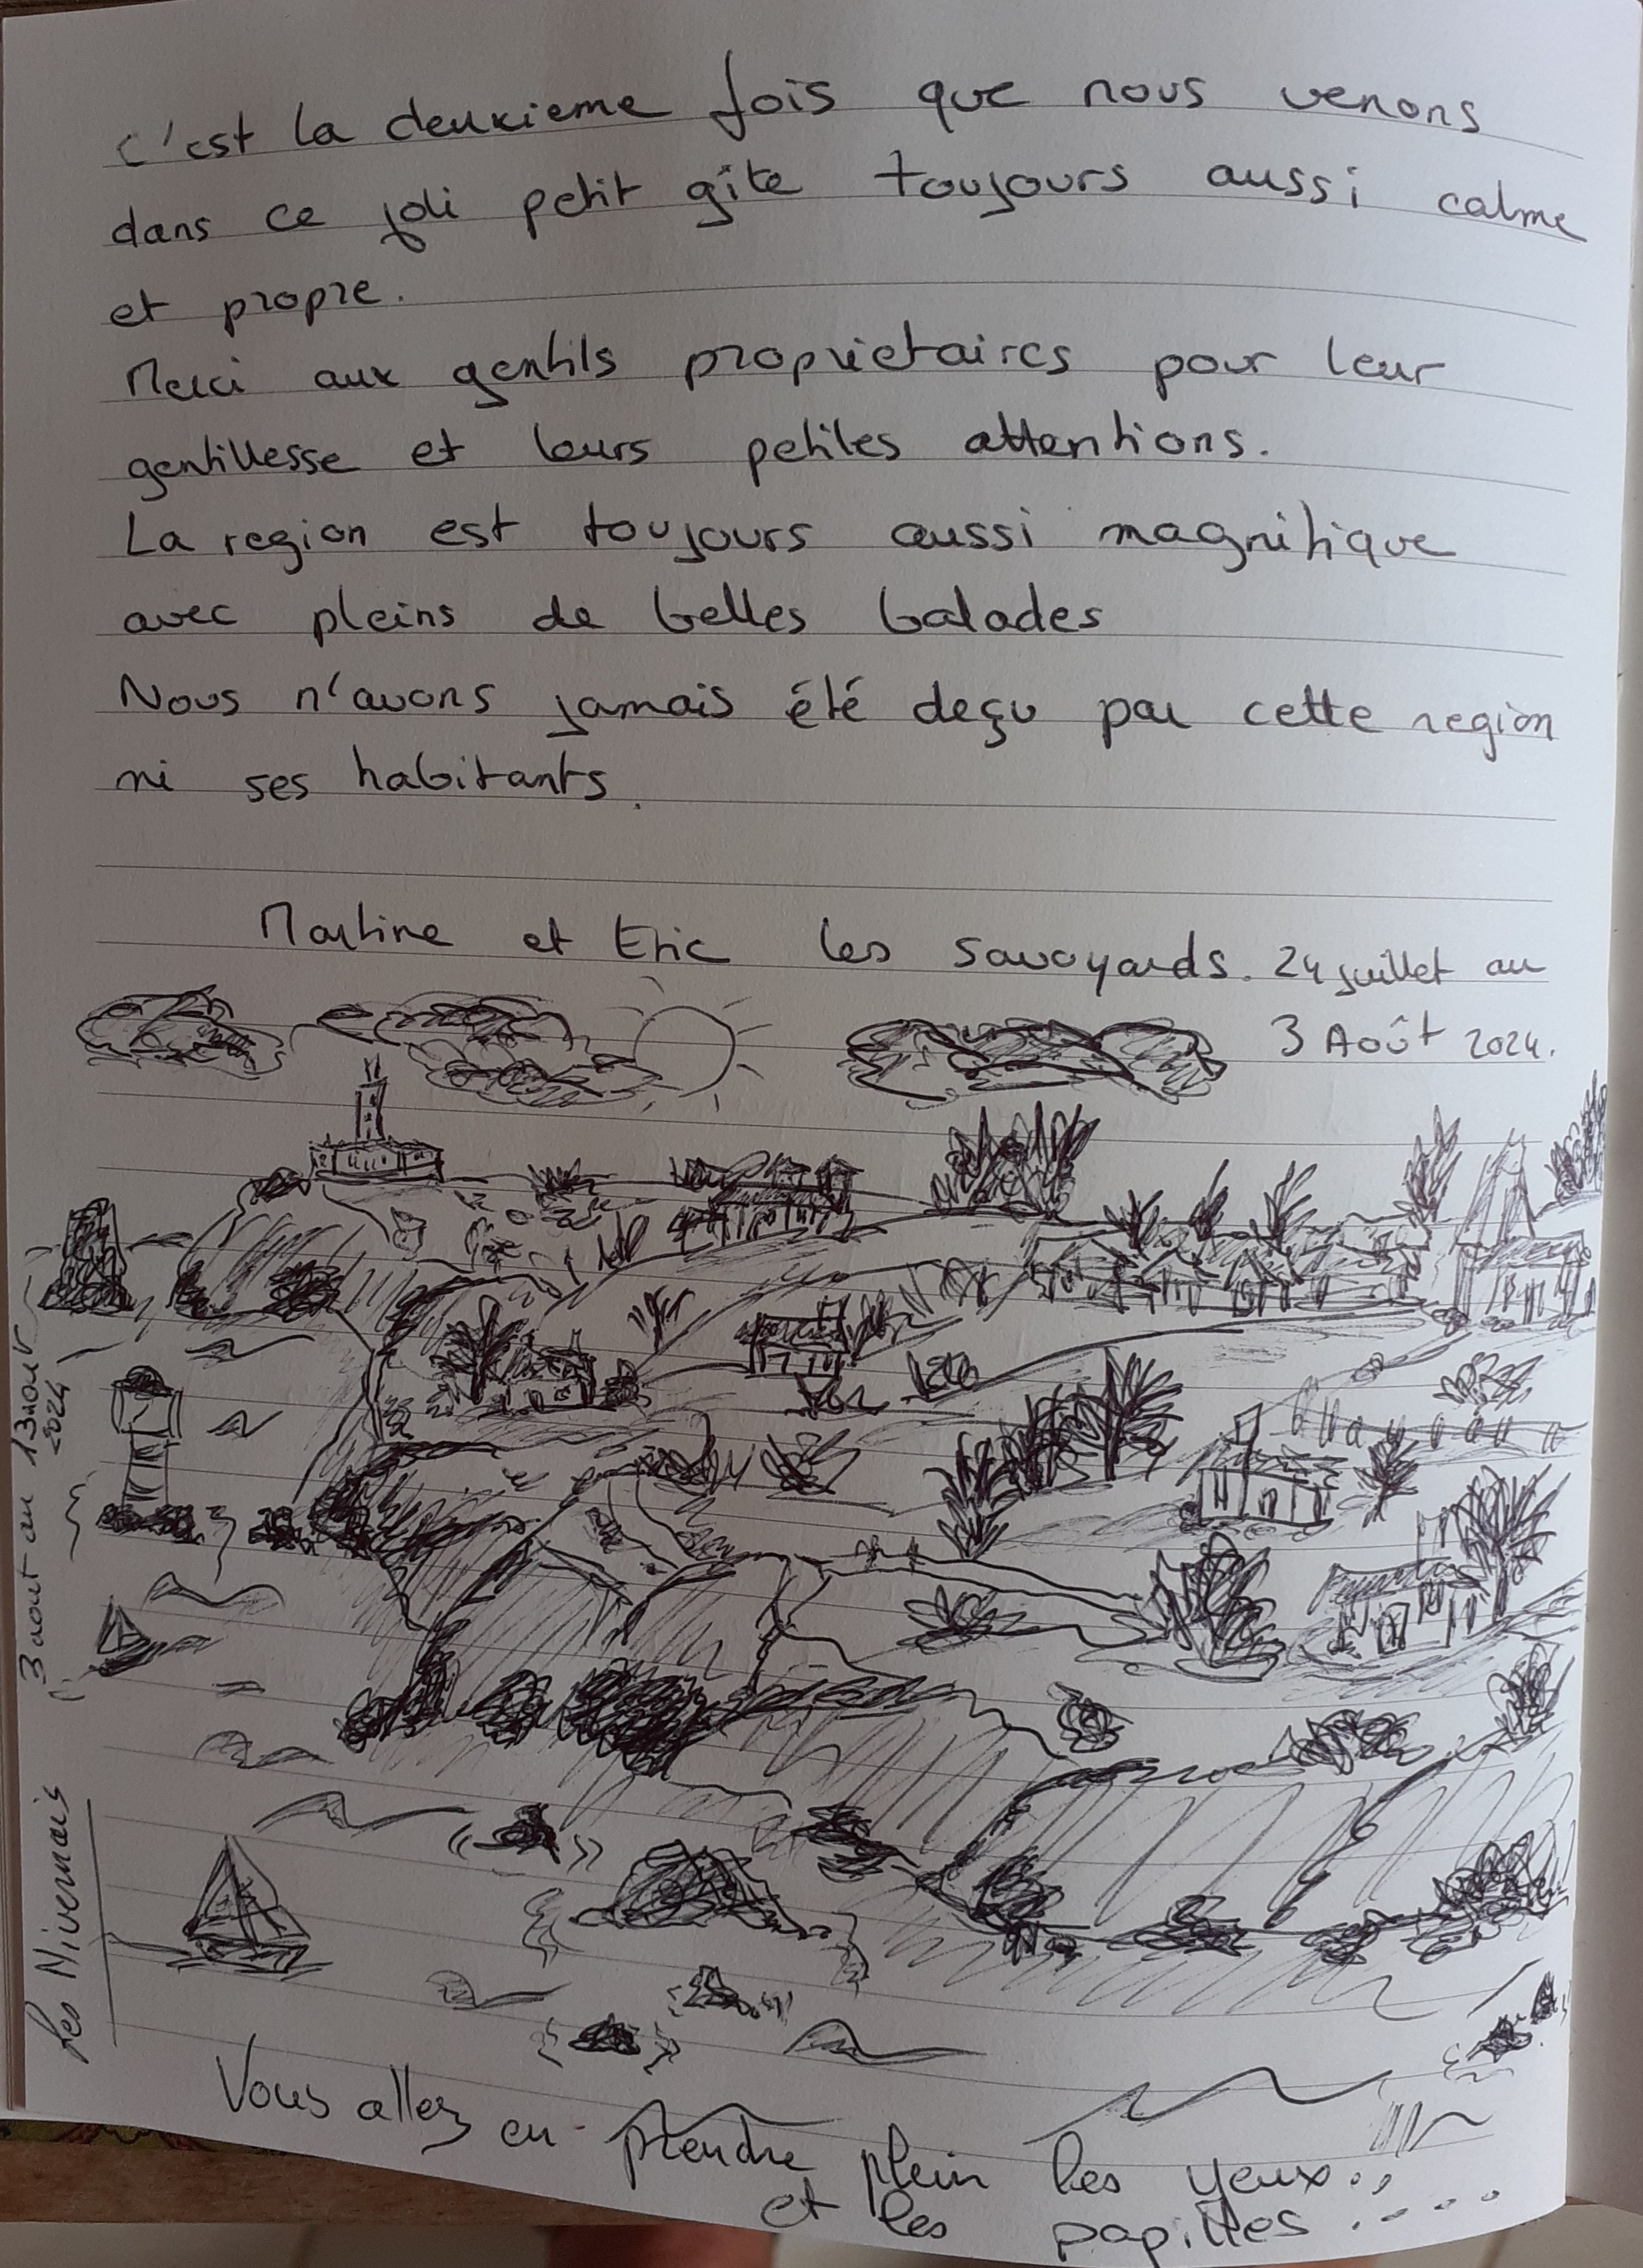 C'est la deuxieme fois que nous venons
dans ce joli petit gîte toujours aussi calme
et propre.
Merci aux gentils proprietaires pour leur
gentillesse et leurs petites attentions.
La region est toujours aussi magnifique
avec pleins de belles balades
Nous n'avons jamais été deçu par cette region
ni ses habitants.
Martine et Eric les savoyards. 24 juillet au
3 Août 2024.
3 aout au 13 aout
2024
Les Nivernais
Vous allez en prendre plein les yeux..
et les papilles....